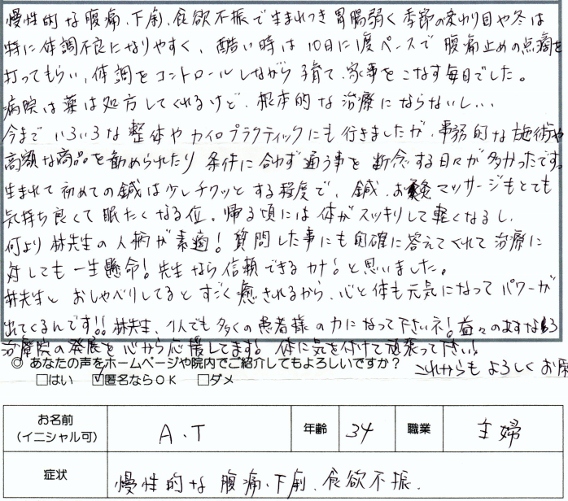 慢性的な腹痛、下痢、食欲不振で生まれつき胃腸弱く季節の変わり目や冬は
特に体調不良になりやすく、酷い時は10日に1度ペースで腹痛止めの点滴を
打ってもらい、体調をコントロールしながら子育て、家事をこなす毎日でした。
病院は薬は処方してくれるけど、根本的な治療にならないし...
今までいろいろな整体やカイロプラクティックにも行きましたが、事務的な施術や
高額な商品を勧められたり条件に合わず通う事を断念する日々が多かったです。
生まれて初めての鍼は少しチクッとする程度で、鍼、お灸、マッサージもとても
気持ち良くて眠たくなる位。帰る頃には体がスッキリして軽くなるし、
何より林先生の人柄が素適!質問した事にも的確に答えてくれて治療に
対しても一生懸命!先生なら信頼できるカナ。と思いました。
林先生とおしゃべりしてるとすごく癒されるから、心と体も元気になってパワーが
出てくるんです!!林先生、1人でも多くの患者様の力になって下さいネ!益々のますなる
治療院の発展を心から応援してます。体に気を付けて頑張って下さい!
これからもよろしくお願
◎ あなたの声をホームページや院内でご紹介してもよろしいですか?
□はい ☑匿名ならOK □ダメ
お名前 (イニシャル可) A.T 年齢 34 職業 主婦
症状 慢性的な腹痛、下痢、食欲不振。